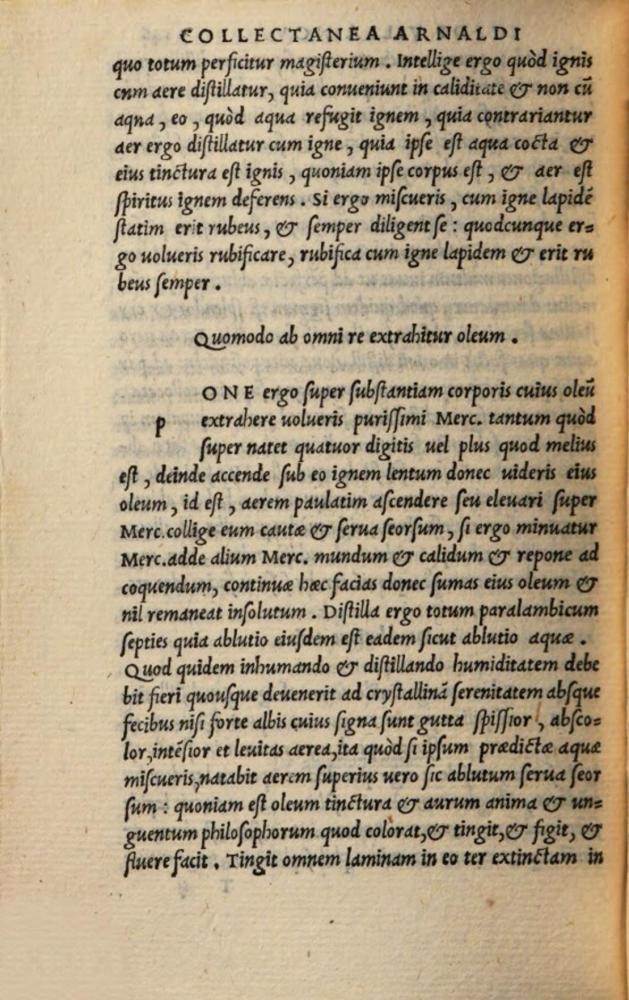 COLLECTANEA ARNALDI
quo totum perficitur magisterium. Intellige ergo quòd ignis
cnm aere distillatur, quia conueniunt in caliditate & non cū
aqna, eo, quòd aqua refugit ignem, quia contrariantur
aer ergo distillatur cum igne, quia ipse est aqua cocta &
eius tinctura est ignis, quoniam ipse corpus est, & aer est
spiritus ignem deferens. Si ergo miscueris, cum igne lapidē
statim erit rubeus, & semper diligent se: quodcunque er=
go uolueris rubificare, rubifica cum igne lapidem & erit ru
beus semper.
Quomodo ab omni re extrahitur oleum.
ONE ergo super substantiam corporis cuius oleū
p extrahere uolueris purissimi Merc. tantum quòd
super natet quatuor digitis uel plus quod melius
est, deinde accende sub eo ignem lentum donec uideris eius
oleum, id est, aerem paulatim ascendere seu eleuari super
Merc. collige eum cautæ & serua seorsum, si ergo minuatur
Merc. adde alium Merc. mundum & calidum & repone ad
coquendum, continuæ hæc facias donec sumas eius oleum &
nil remaneat insolutum. Distilla ergo totum paralambicum
septies quia ablutio eiusdem est eadem sicut ablutio aquæ.
Quod quidem inhumando & distillando humiditatem debe
bit fieri quousque deuenerit ad crystallinā serenitatem absque
fecibus nisi forte albis cuius signa sunt gutta spissior, absco=
lor, intēsior et leuitas aerea, ita quòd si ipsum prædictæ aquæ
miscueris, natabit aerem superius uero sic ablutum serua seor
sum: quoniam est oleum tinctura & aurum anima & un=
guentum philosophorum quod colorat, & tingit, & figit, &
fluere facit. Tingit omnem laminam in eo ter extinctam in